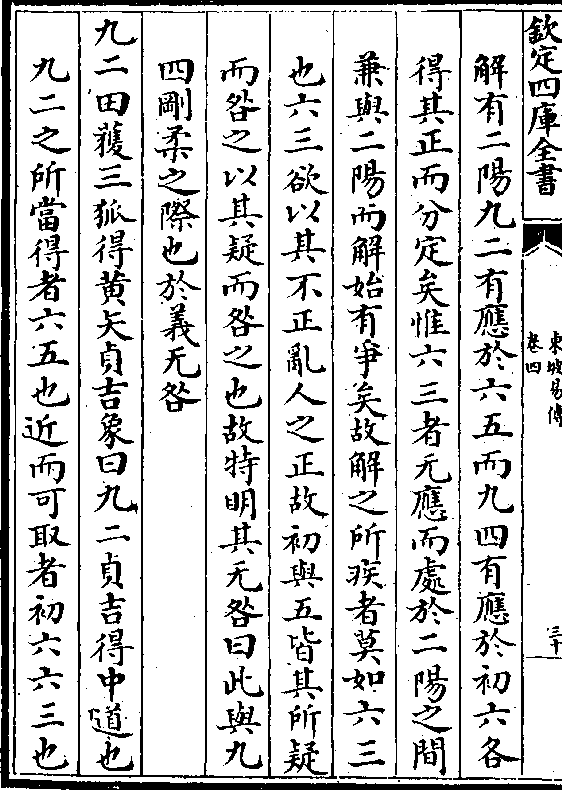 欽定四庫全書
東坡易傳
卷四
三十
解有二陽九二有應於六五而九四有應於初六各
得其正而分定矣惟六三者无應而處於二陽之間
兼與二陽而解始有爭矣故解之所疾者莫如六三
也六三欲以其不正亂人之正故初與五皆其所疑
而咎之以其疑而咎之也故特明其无咎曰此與九
四剛柔之際也於義无咎
九二田獲三狐得黄矢貞吉象曰九二貞吉得中道也
九二之所當得者六五也近而可取者初六六三也